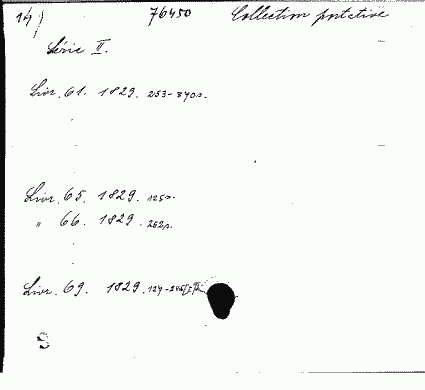 14) 76450 Collection portative
Série II.
Livr. 61. 1829. 253-370s.
Livr. 65. 1829. 125s.
" 66. 1829. 252s.
Livr. 69. 1829. 127-
S